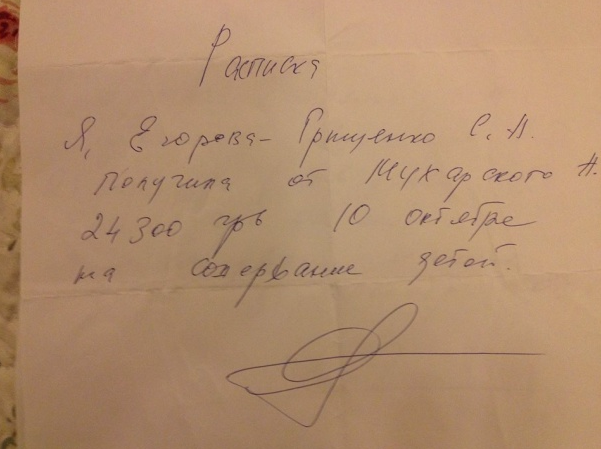 Расписка
Я, Егорова-Грищенко С. А.
получила от Мухарского А.
24300 грв 10 октября
на содержание детей.